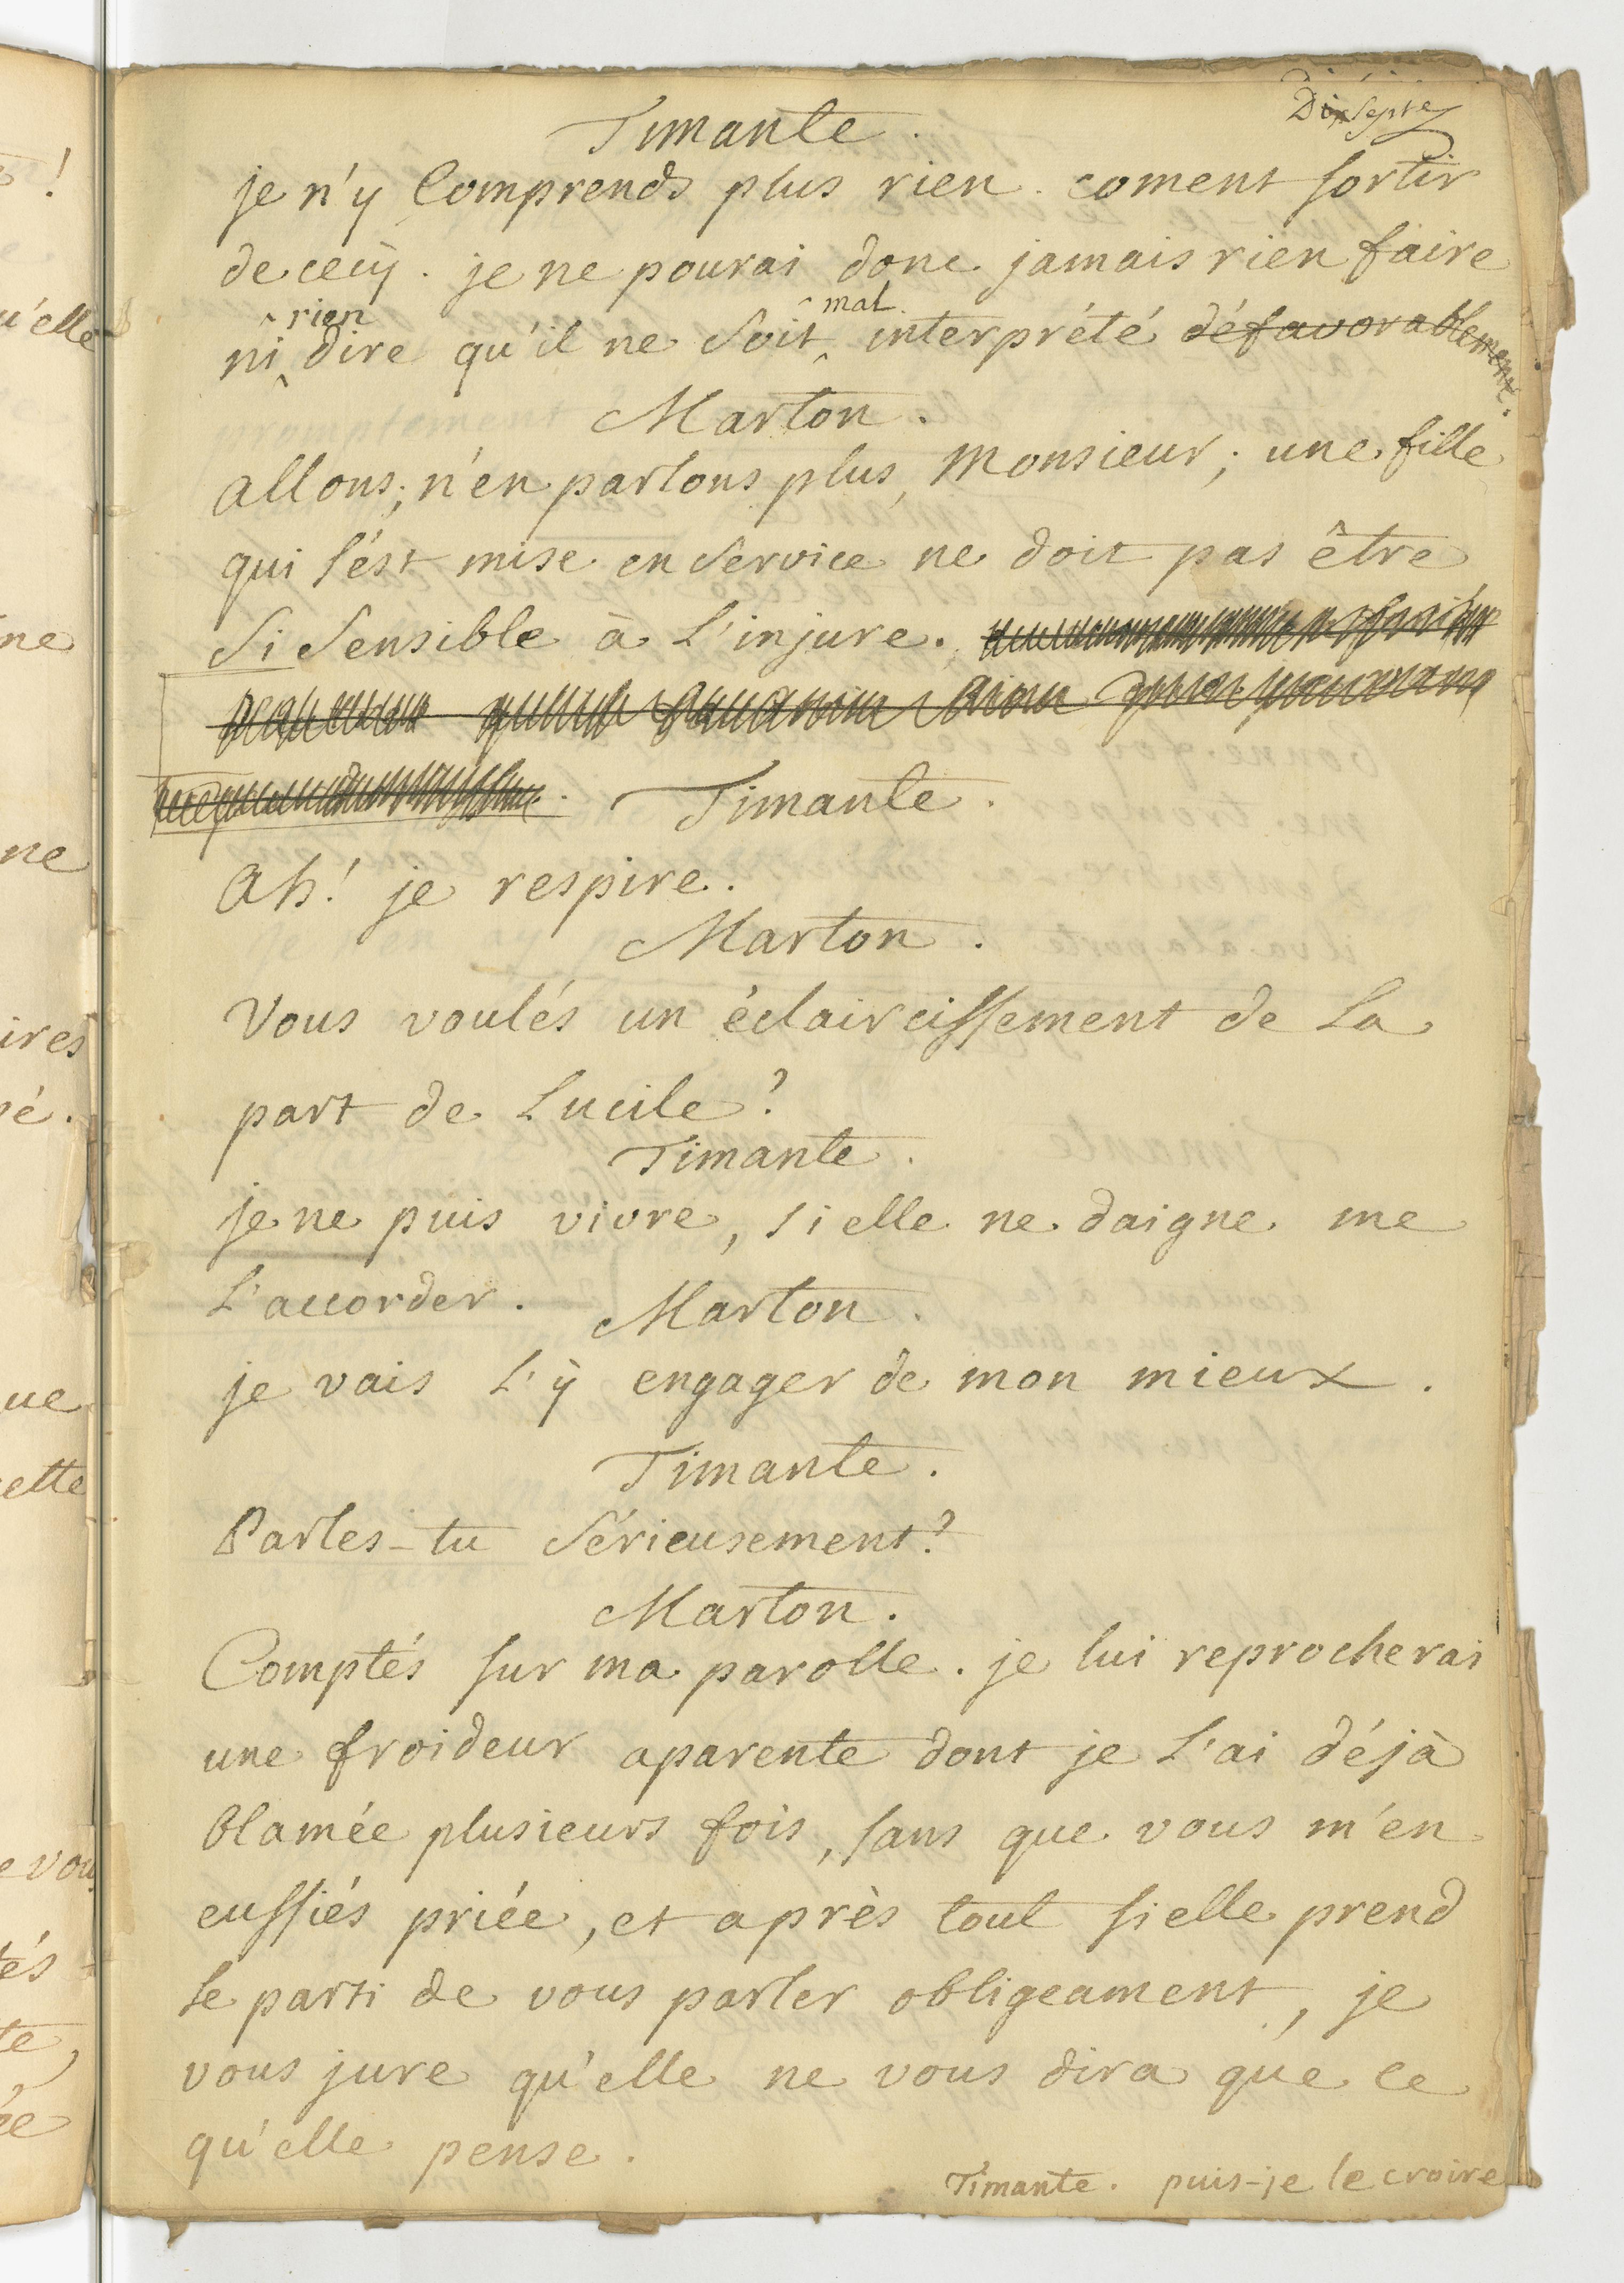 Dix Septe
Timante.
je n'y Comprends plus rien. coment sortir
de cecy. je ne pourai donc jamais rien faire
ni rien dire qu'il ne soit mal interprété défavorablement.
Marton.
allons; n'en parlons plus, Monsieur; une fille
qui s'ést mise en service ne doit pas être
si sensible à l'injure.
Timante.
Ah! je respire.
Marton.
Vous voulés un éclaircissement de la
part de Lucile?
Timante.
je ne puis vivre, si elle ne daigne me
l'accorder. Marton.
je vais l'ÿ engager de mon mieux.
Timante.
Parles-tu sérieusement?
Marton.
Comptés sur ma parolle. je lui reprocherai
une froideur aparente dont je l'ai déjà
blamée plusieurs fois, sans que vous m'en
eussiés priée, et après tout si elle prend
le parti de vous parler obligeament, je
vous jure qu'elle ne vous dira que ce
qu'elle pense.
Timante. puis-je le croire